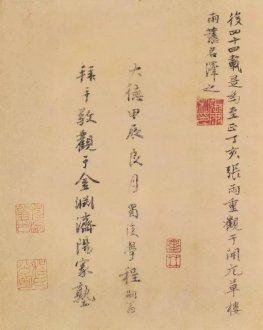 後四十四載是為至正丁亥張雨重觀于開元草樓
雨舊名澤之
大德甲辰良月蜀後學程嗣翁
拜手敬觀于金淵濟陽家塾